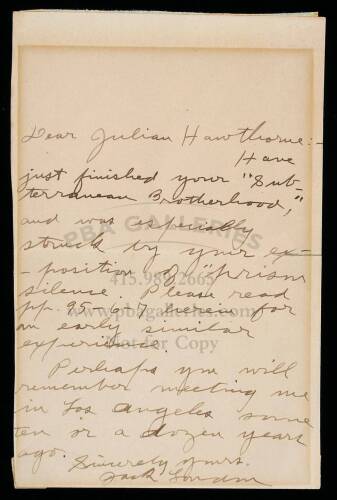 Dear Julian Hawthorne:-
Have
just finished your "Sub-
terranean Brotherhood,"
and was especially
struck by your ex-
-position of prison
silence. Please read
pp. 95 herein for
an early similar
experience.
Perhaps you will
remember meeting me
in Los Angeles some
ten or a dozen years
ago.
Sincerely yours,
Jack London
PBA GALLERIES
415.989.2665
www.pbagalleries.com